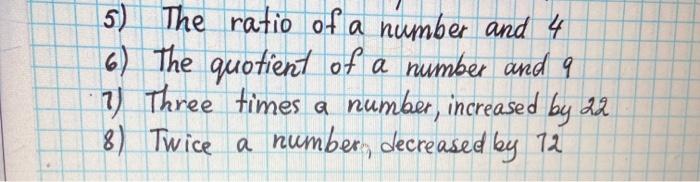 5) The ratio of a number and 4
6) The quotient of a number and 9
7) Three times a number, increased by 22
8) Twice a number, decreased by 12